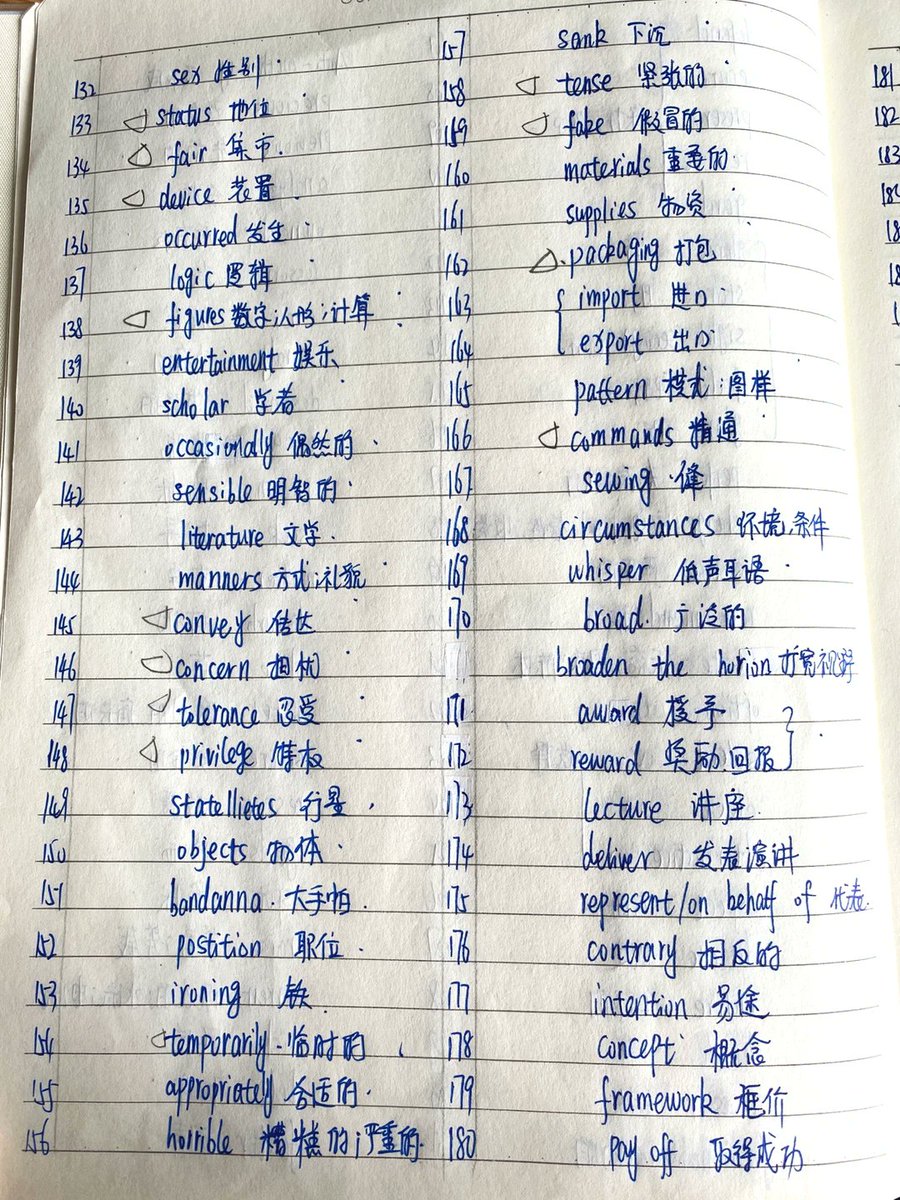 132 sex 性别
133 status 地位
134 fair 集市
135 device 装置
136 occurred 发生
137 logic 逻辑
138 figures 数字;人形;计算
139 entertainment 娱乐
140 scholar 学者
141 occasionally 偶然的
142 sensible 明智的
143 literature 文学
144 manners 方式;礼貌
145 convey 传达
146 concern 担忧
147 tolerance 忍受
148 privilege 特权
149 statellietes 行星
150 objects 物体
151 bandanna 大手帕
152 postition 职位
153 ironing 铁
154 temporarily 临时的
155 appropriately 合适的
156 horrible 糟糕的;严重的
157 sank 下沉
158 tense 紧张的
159 fake 假冒的
160 materials 重要的
161 supplies 物资
162 packaging 打包
163 import 进口
164 export 出口
165 pattern 模式;图样
166 commands 精通
167 sewing 缝
168 circumstances 环境,条件
169 whisper 低声耳语
170 broad 广泛的
broaden the horion 扩宽视野
171 award 授予
172 reward 奖励,回报
173 lecture 讲座
174 deliver 发表演讲
175 represent/on behalf of 代表
176 contrary 相反的
177 intention 易途
178 concept 概念
179 framework 框价
180 pay off 取得成功
181
182
183